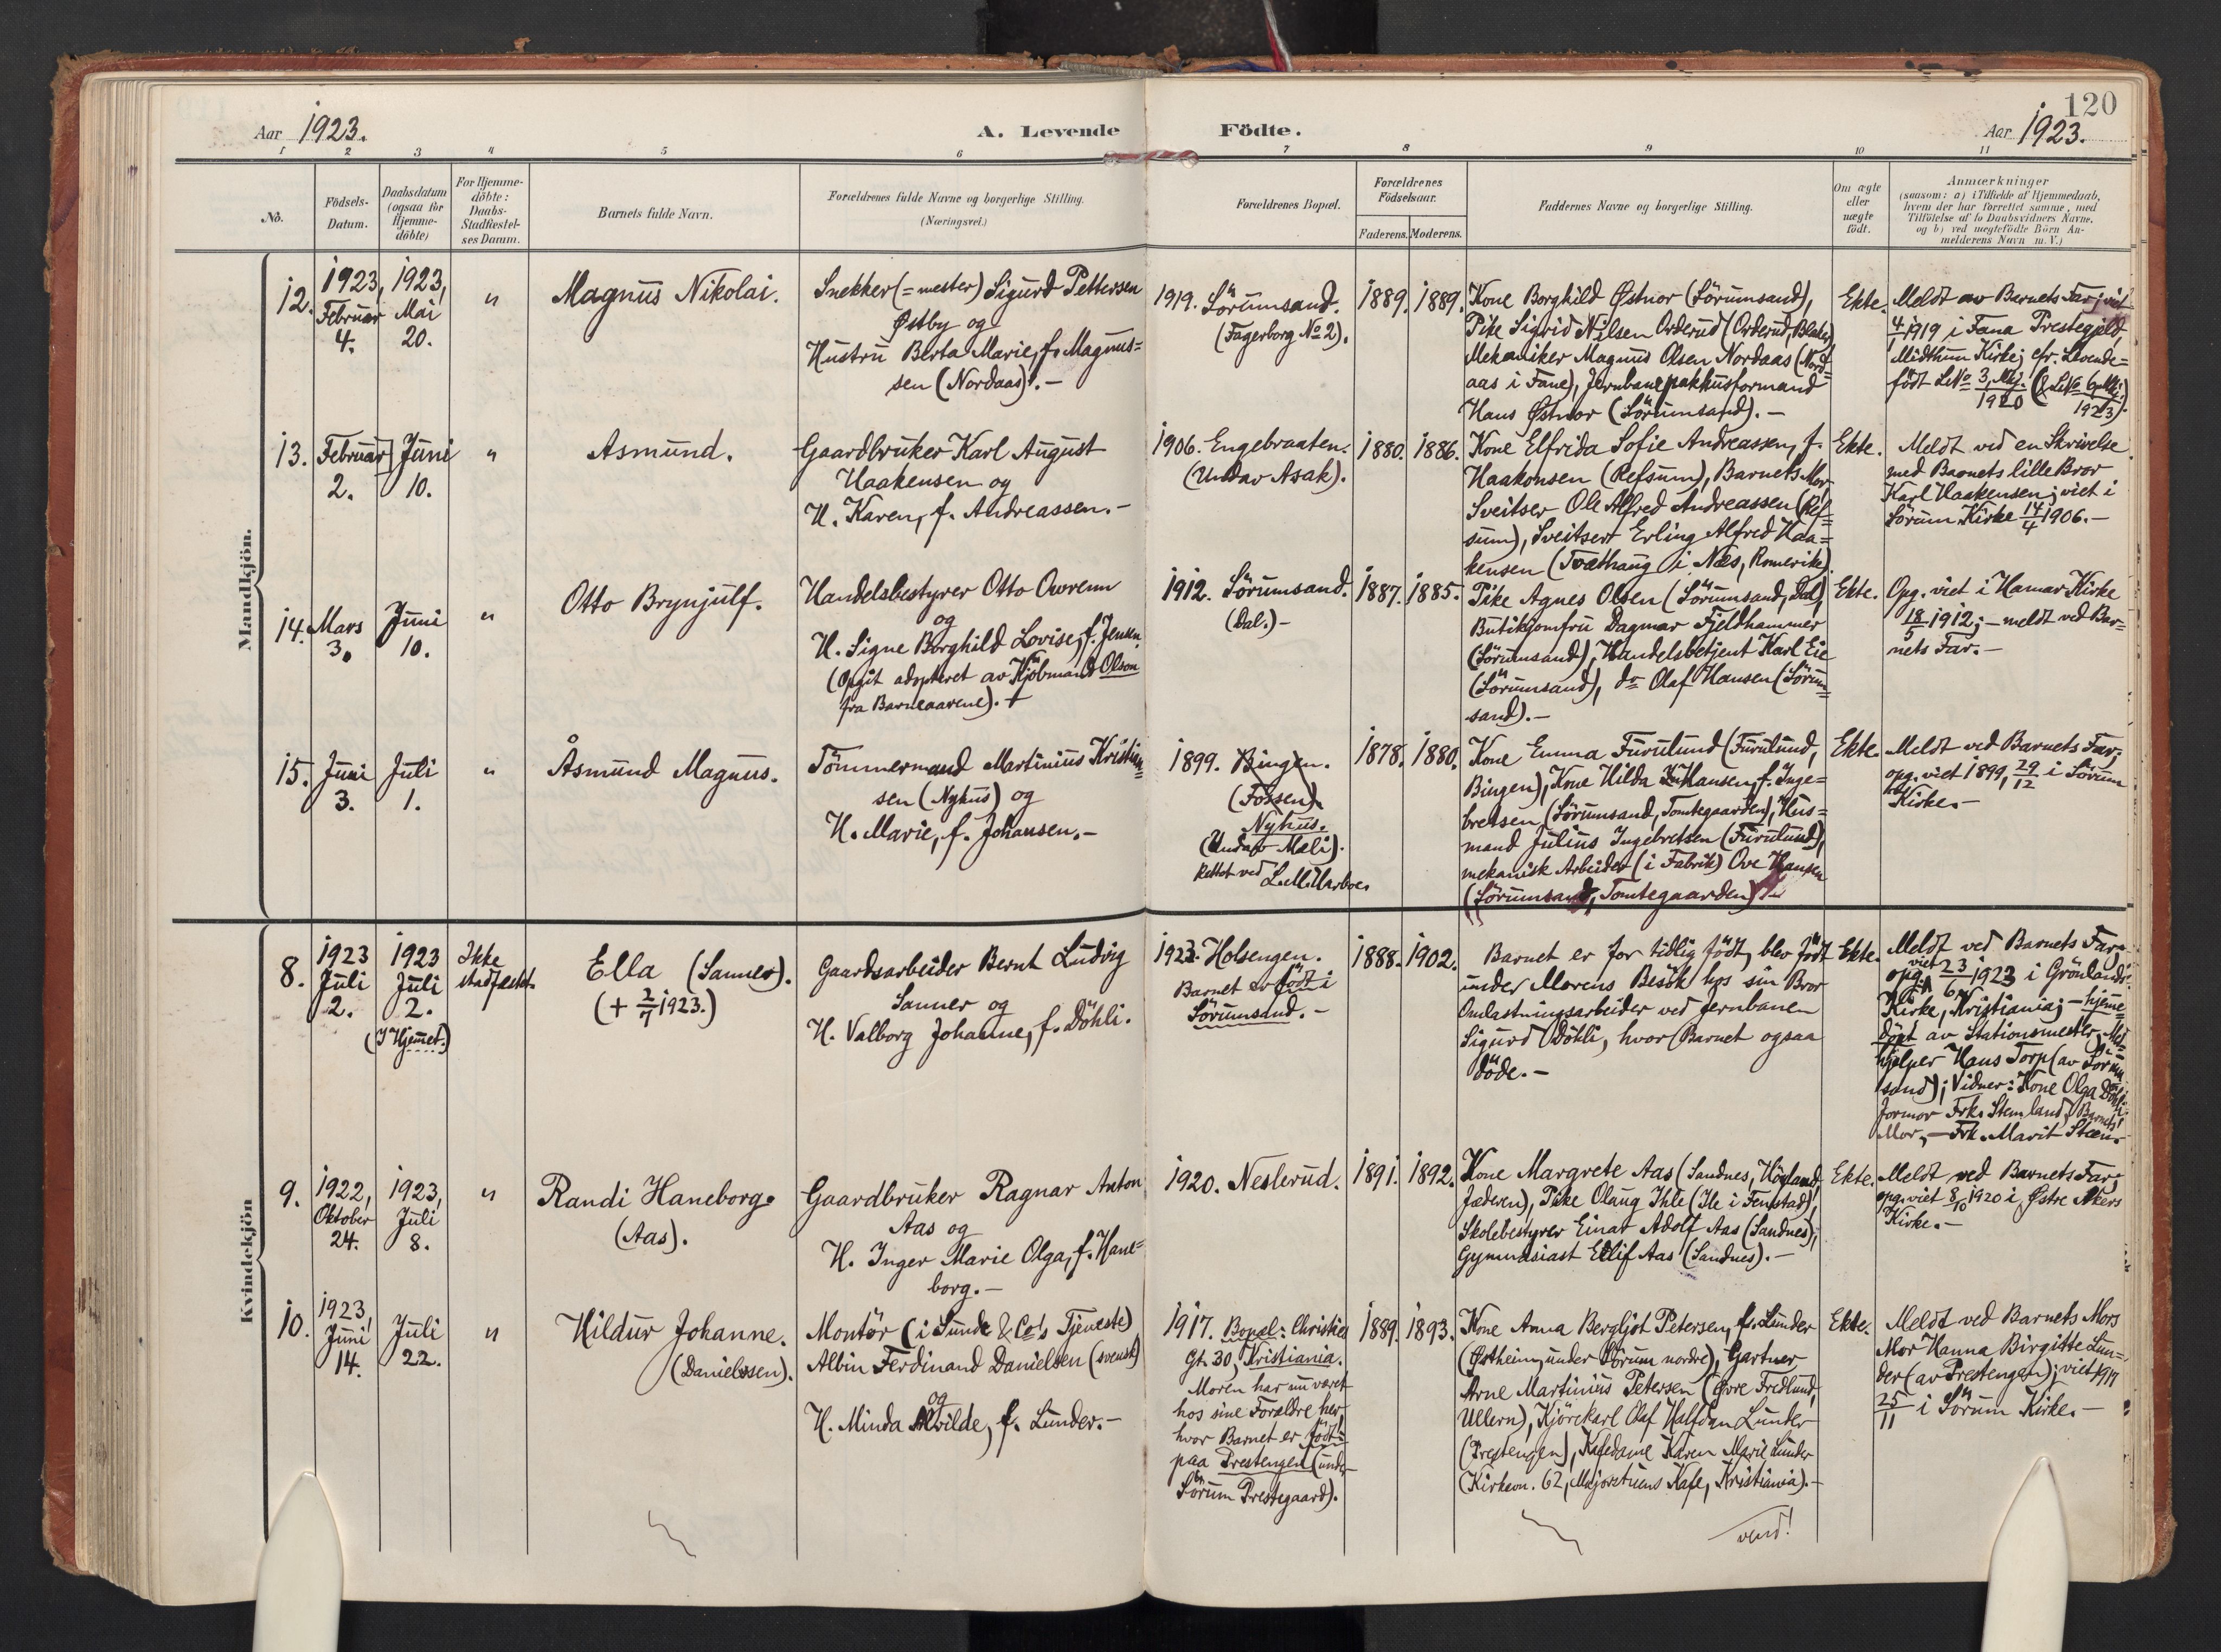 120
Aar 1923.
A. Levende Födte.
Aar 1923.
1 2 3 4 5 6 7 8 9 10 11
No.
Födsels-Datum.
Daabsdatum (ogsaa for Hjemme-döbte)
For Hjemme-döbte: Daabs-Stadfæstel-ses Datum.
Barnets fulde Navn.
Forældrenes fulde Navne og borgerlige Stilling.
(Næringsvei.)
Forældrenes Bopæl.
Forældrenes Födselsaar.
Faderens. Moderens.
Faddernes Navne og borgerlige Stilling.
Om ægte eller uægte födt.
Anmærkninger
(saasom: a) i Tilfælde af Hjemmedaab,
hvem der har forrettet samme, med
Tilföielse af to Daabsvidners Navne,
og b) ved uægtefödte Börn An-
melderens Navn m. V.)
Mandkjön.
12.
1923,
Februar
4.
1923,
Mai
20.
"
Magnus Nikolai.
Snekker (=mester) Sigurd Pettersen
Østby og
Hustru Berta Marie, f. Magnus=
sen (Nordaas). –
1919. Sörumsand.
(Fagerborg No 2).
1889. 1889.
Kone Borghild Østnor (Sörumsand),
Pike Sigrid Nilsen Orderud (Orderud, Blaker)
Mekaniker Magnus Olsen Nordaas (Nord=
aas i Fane), Jernbanepakhusformand
Hans Østnor (Sörumsand). –
Ekte.
Meldt av Barnets Far; viet
4/1 1919 i Fana Prestegjeld,
Midthun Kirke; cfr. Levende=
födt LNo 3, Mkj. 1920 (& LNo 6 Mkj. 1923).
13.
Februar
2.
Juni
10.
"
Asmund.
Gaardbruker Karl August
Haakensen og
H. Karen, f. Andreassen. –
1906. Engebraaten.
(Undav Asak).
1880. 1886.
Kone Elfrida Sofie Andreassen, f.
Haakonsen (Refsum), Barnets Mor,
Sveitser Ole Alfred Andreassen (Ref=
sum), Sveitser Erling Alfred Haa=
kensen (Tvethaug i Næs, Romerike).
Ekte.
Meldt ved en Skrivelse
med Barnets lille Bror
Karl Haakensen; viet i
Sörum Kirke 14/4 1906. –
14.
Mars
3.
Juni
10.
"
Otto Brynjulf.
Handelsbestyrer Otto Owrenn
og
H. Signe Borghild Lovise, f. Jensen.
(Opgit adopteret av Kjöbmand Olson
fra Barneaarene). +
1912. Sörumsand.
(Dal.) –
1887. 1885.
Pike Agnes Olsen (Sörumsand, Dal),
Butikjomfru Dagmar Fjeldhammer
(Sörumsand), Handelsbetjent Karl Eie
(Sörumsand), do Olaf Hansen (Sörum=
sand). –
Ekte.
Opg. viet i Hamar Kirke
18/5 1912; – meldt ved Bar=
nets Far. –
15.
Juni
3.
Juli
1.
"
Åsmund Magnus.
Tömmermand Martinius Kristian=
sen (Nyhus) og
H. Marie, f. Johansen. –
1899. Bingen.
(Fossen).
Nyhus.
(Undav Mæli).
Rettet ved
1878. 1880.
Kone Emma Furulund (Furulund,
Bingen), Kone Hilda Hansen, f. Inge=
bretsen (Sörumsand, Tomtegaarden), Hus=
mand Julius Ingebretsen (Furulund),
mekanisk Arbeider (i Fabrik) Ove Hansen
(Sörumsand, Tomtegaarden). –
Ekte.
Meldt ved Barnets Far;
opg. viet 1899, 29/12 i Sörum
Kirke. –
Kvindekjön
8.
1923
Juli
2.
1923
Juli
2.
(I Hjemmet.)
Ikke
stadfæstet.
Ella (Sanner).
(+ 2/7 1923.)
Gaardsarbeider Bernt Ludvig
Sanner og
H. Valborg Johanne, f. Döhli.
1923. Holsengen.
Barnet er födt i
Sörumsand. –
1888. 1902.
Barnet er for tidlig födt, blev födt
under Morens Besök hos sin Bror
Omlastningsarbeider ved Jernbanen
Sigurd Döhli, hvor Barnet ogsaa
döde. –
Ekte.
Meldt ved Barnets Far;
opg. viet 23/6 1923 i Grönlands
Kirke, Kristiania; – hjemme=
döpt av Stationsmester, Med=
hjelper Hans Torp (av Sörum=
sand); Vidner: Kone Olga Döhli,
Jormor Frk. Stemland, Barnets
Mor, – Frk. Marit Steen. –
9.
1922,
Oktober
24.
1923,
Juli
8.
"
Randi Haneborg.
(Aas).
Gaardbruker Ragnar Anton
Aas og
H. Inger Marie Olga, f. Hane=
borg. –
1920. Neslerud.
1891. 1892.
Kone Margrete Aas (Sandnes, Höyland,
Jæderen), Pike Olaug Ihle (Ile i Fenstad),
Skolebestyrer Einar Adolf Aas (Sandnes),
Gymnasiast Eilif Aas (Sandnes). –
Ekte.
Meldt ved Barnets Far;
opg. viet 8/10 1920 i Østre Akers
Kirke. –
10.
1923,
Juni
14.
Juli
22.
"
Hildur Johanne.
(Danielsen).
Montör (i Sunde & Co's Tjeneste)
Albin Ferdinand Danielsen (svensk)
og
H. Minda Alvilde, f. Lunder. –
1917. Bopæl: Christies
Gt. 30, Kristiania.
Moren har nu været
hos sine Forældre her,
hvor Barnet er födt:
paa Prestengen (under
Sörum Prestegaard).
1889. 1893.
Kone Anna Bergljot Petersen, f. Lunder
(Østheim, under Sörum nordre), Gartner
Arne Martinius Petersen (Øvre Fredlund,
Ullern), Kjörekarl Olaf Halfdan Lunder
(Prestengen), Kafedame Karen Marie Lunder
(Kirkevn. 62, Majorstuens Kafe, Kristiania). –
Ekte.
Meldt ved Barnets Mors
Mor Hanna Birgitte Lun=
der (av Prestengen); viet 1917
25/11 i Sörum Kirke. –
vend!